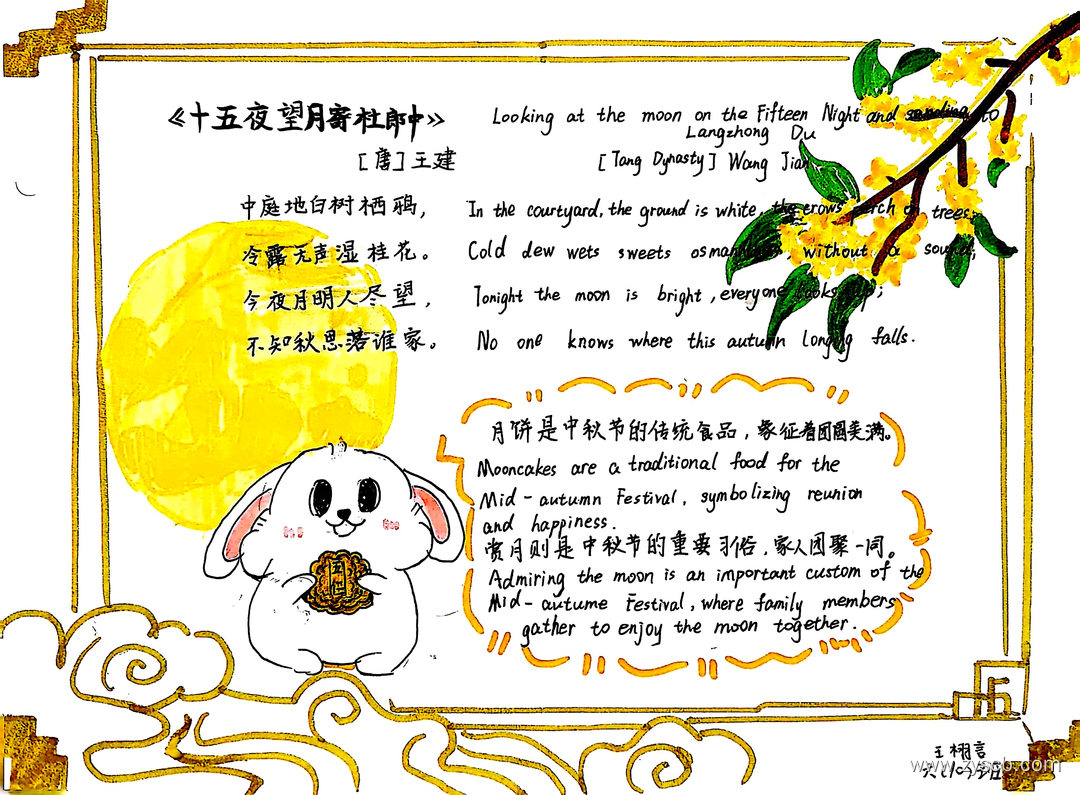 《十五夜望月寄杜郎中》
Looking at the moon on the Fifteen Night and sending to
Langzhong Du
[唐]王建
[Tang Dynasty] Wang Jian
中庭地白树栖鸦,
In the courtyard, the ground is white, the crows perch on trees,
冷露无声湿桂花。
Cold dew wets sweets osmanthus, without a sound;
今夜月明人尽望,
Tonight the moon is bright, everyone looks up;
不知秋思落谁家。
No one knows where this autumn longing falls.
月饼是中秋节的传统食品,象征着团圆美满。
Mooncakes are a traditional food for the
Mid-autumn Festival, symbolizing reunion
and happiness.
赏月则是中秋节的重要习俗,家人团聚一同。
Admiring the moon is an important custom of the
Mid-autume Festival, where family members
gather to enjoy the moon together.
五仁
王栩言
www.zyscb.com